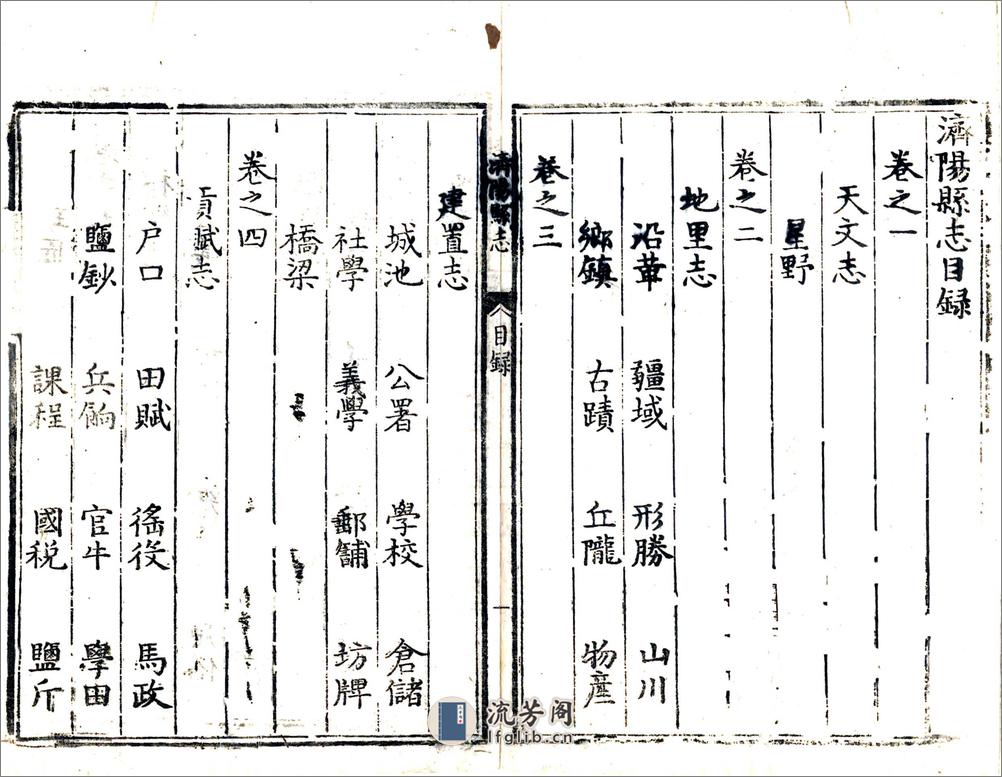 濟陽縣志目録
卷之一
天文志
星野
卷之二
地里志
沿革 疆域 形勝 山川
鄉鎮 古蹟 丘隴 物產
卷之三
濟陽縣志 目録 一
建置志
城池 公署 學校 倉儲
社學 義學 郵舖 坊牌
橋梁
卷之四
貢賦志
户口 田賦 徭役 馬政
鹽鈔 兵餉 官牛 學田
課程 國税 鹽斤
流芳阁
lfglib.cn